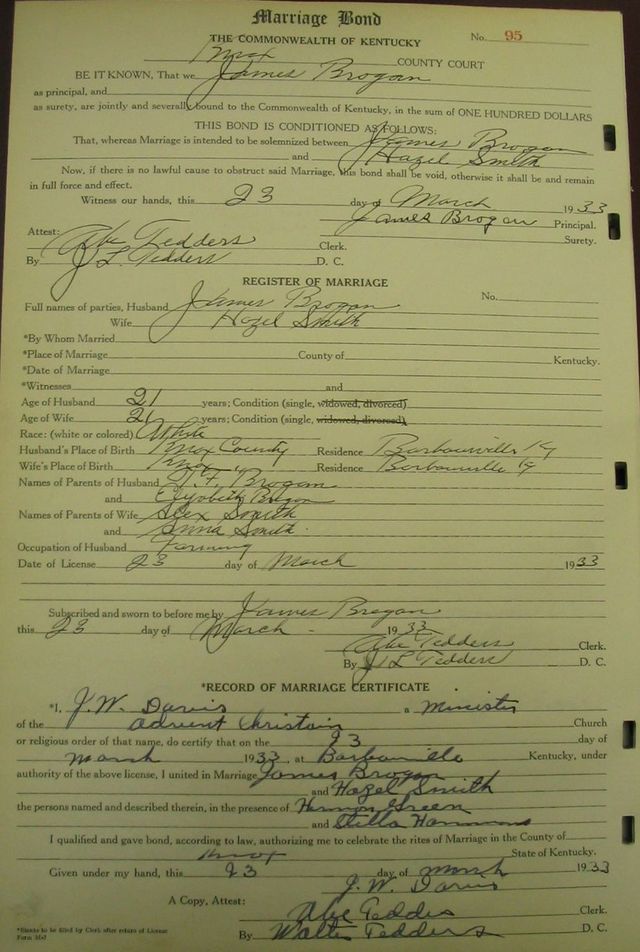 Marriage Bond
THE COMMONWEALTH OF KENTUCKY No. 95
Knox COUNTY COURT
BE IT KNOWN, That we James Brogan
as principal, and
as surety, are jointly and severally bound to the Commonwealth of Kentucky, in the sum of ONE HUNDRED DOLLARS
THIS BOND IS CONDITIONED AS FOLLOWS:
That, whereas Marriage is intended to be solemnized between James Brogan
and Hazel Smith
Now, if there is no lawful cause to obstruct said Marriage, this bond shall be void, otherwise it shall be and remain
in full force and effect.
Witness our hands, this 23 day of March 1933
James Brogan Principal.
Surety.
Attest: Abe Tedders Clerk.
By J L Tedders D. C.
REGISTER OF MARRIAGE
Full names of parties, Husband James Brogan No.
Wife Hazel Smith
*By Whom Married
*Place of Marriage County of Kentucky.
*Date of Marriage
*Witnesses and
Age of Husband 21 years; Condition (single, widowed, divorced)
Age of Wife 21 years; Condition (single, widowed, divorced)
Race: (white or colored) White
Husband's Place of Birth Knox County Residence Barbourville Ky
Wife's Place of Birth Knox " Residence Barbourville Ky
Names of Parents of Husband Brogan
and Elizabeth Brogan
Names of Parents of Wife Alex Smith
and Anna Smith
Occupation of Husband Farming
Date of License 23 day of March 1933
Subscribed and sworn to before me by James Brogan
this 23 day of March - 1933
Abe Tedders Clerk.
By J L Tedders D. C.
*RECORD OF MARRIAGE CERTIFICATE
*I, J. W. Davis a Minister
of the Advent Christain Church
or religious order of that name, do certify that on the 23 day of
March 1933, at Barbourville Kentucky, under
authority of the above license, I united in Marriage James Brogan
and Hazel Smith
the persons named and described therein, in the presence of Herman Green
and Stella Hammons
I qualified and gave bond, according to law, authorizing me to celebrate the rites of Marriage in the County of
Knox State of Kentucky.
Given under my hand, this 23 day of March 1933
J. W. Davis
A Copy, Attest: Abe Tedders Clerk.
By Walter Tedders D. C.
*Blanks to be filled by Clerk after return of License